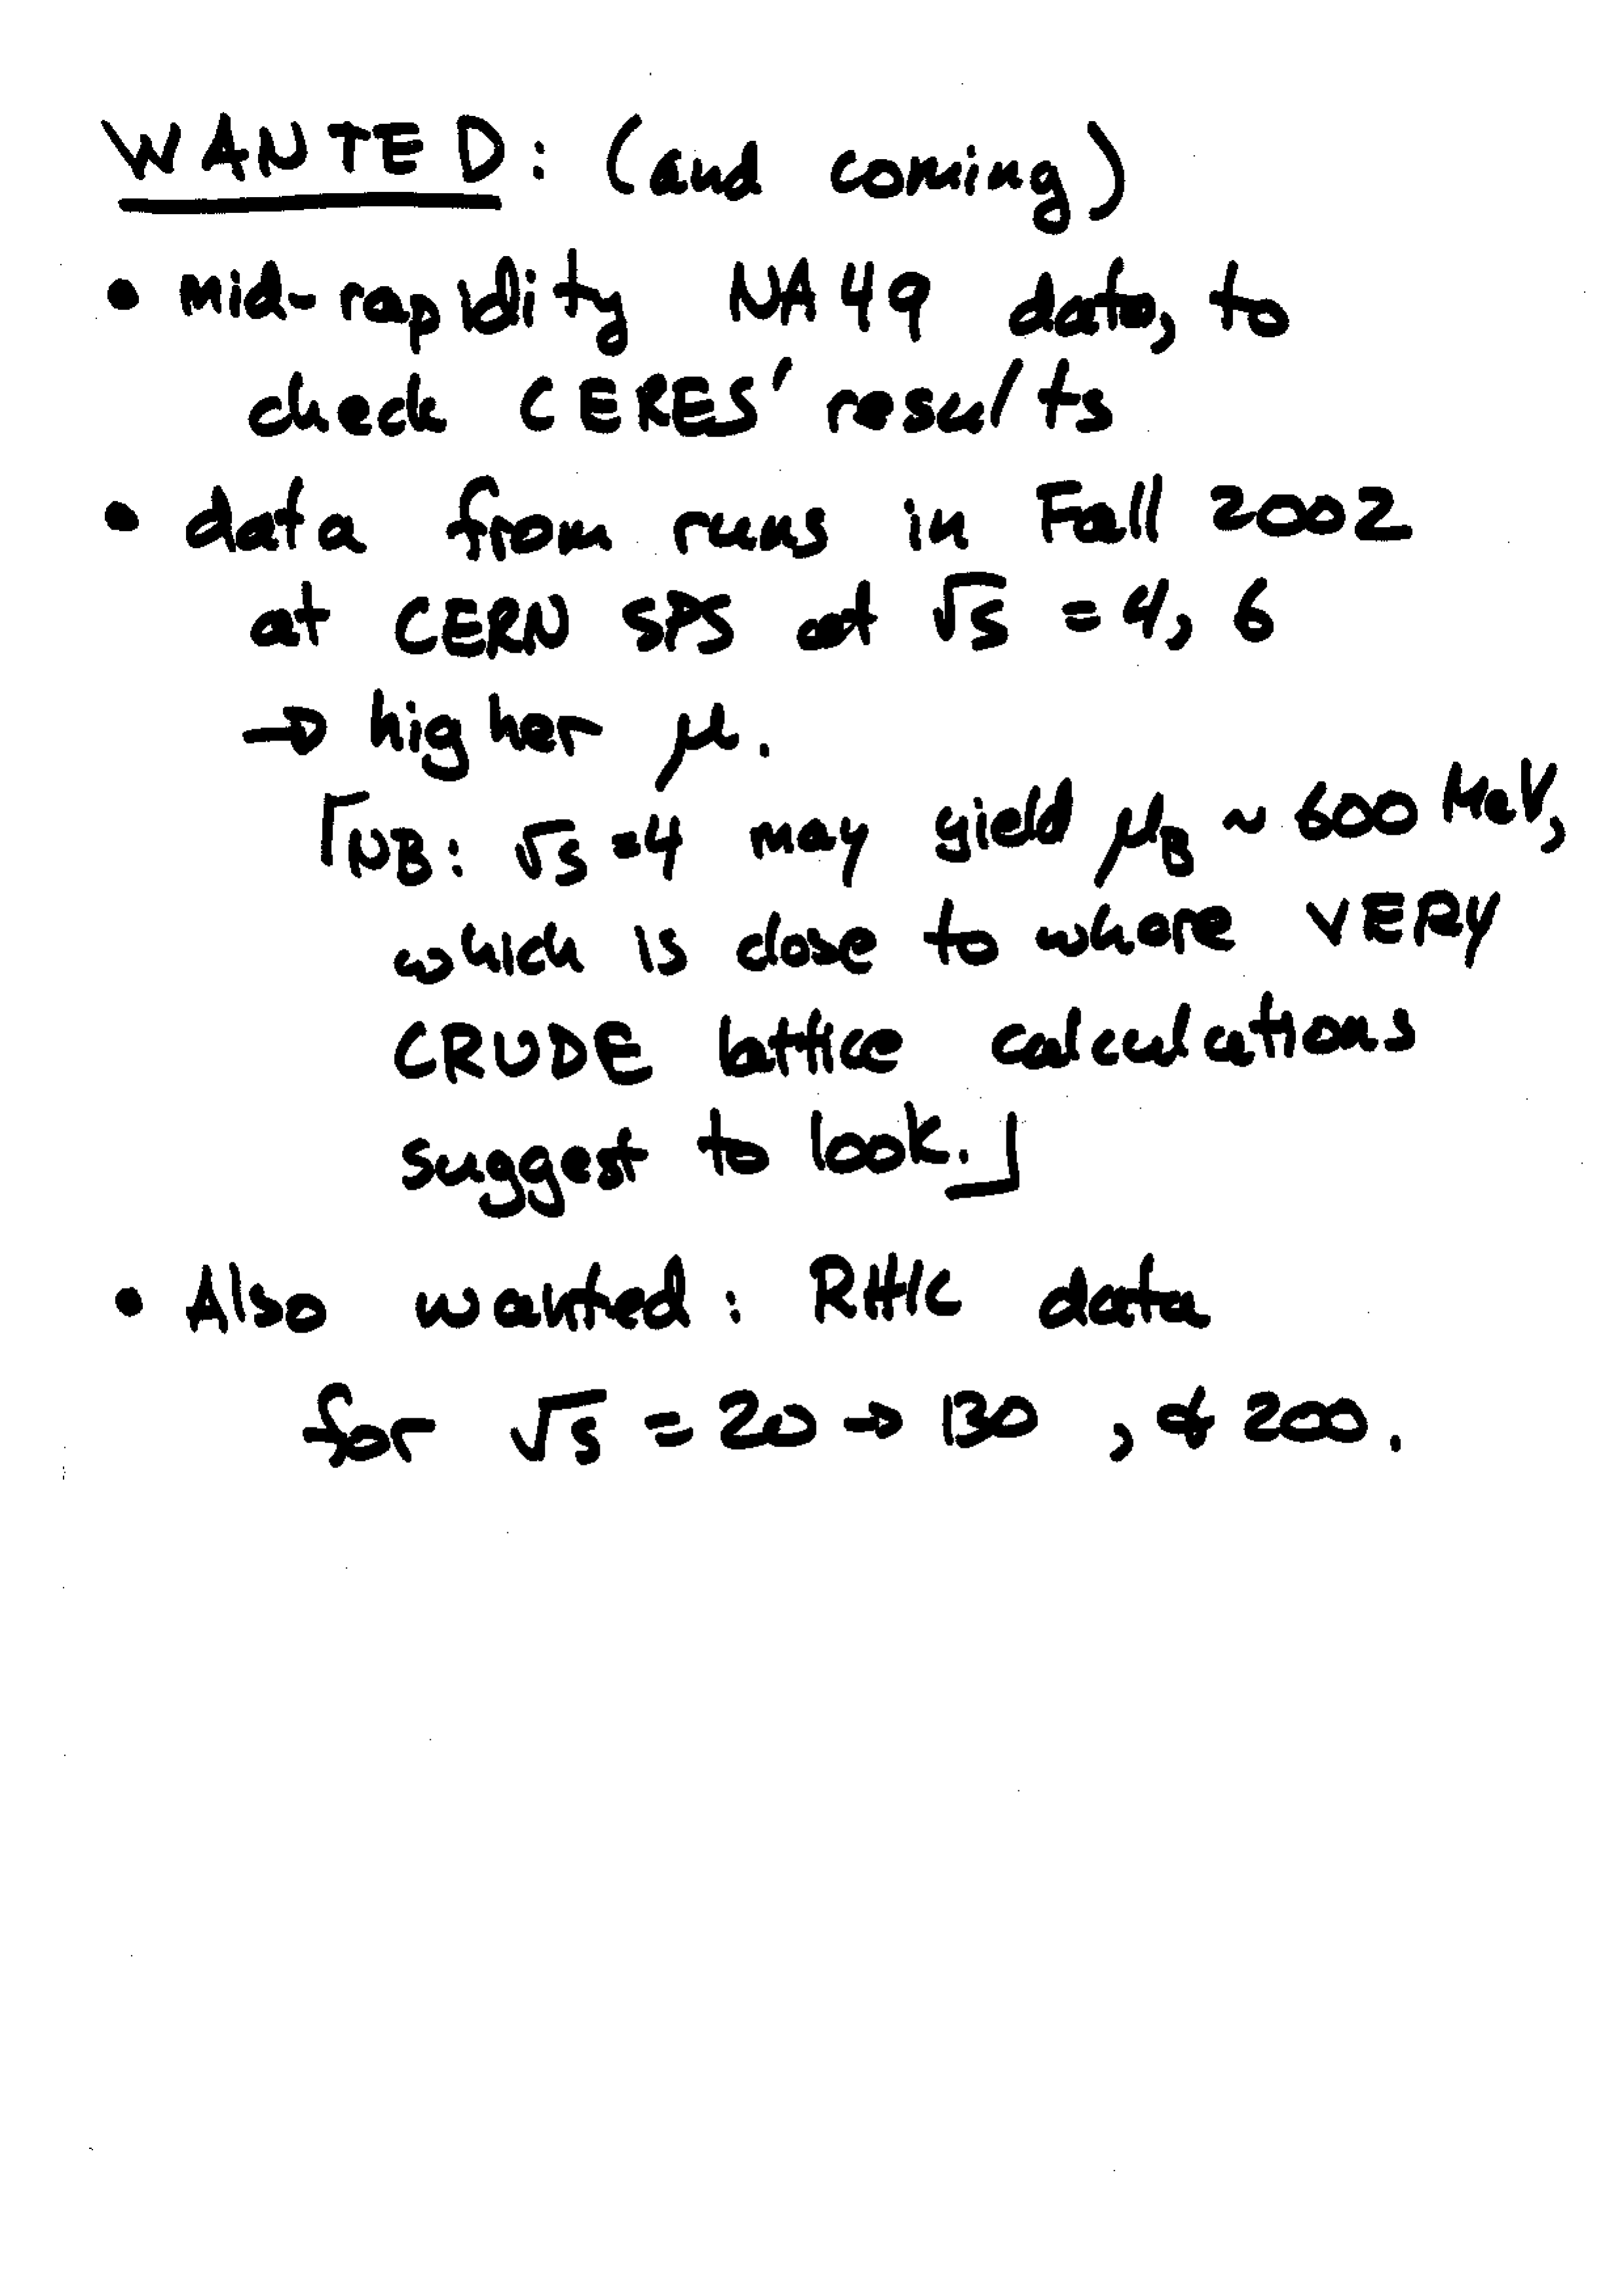 WANTED: (and coming)
• mid-rapidity NA49 data, to
check CERES' results
• data from runs in Fall 2002
at CERN SPS at √s = 4, 6
→ higher μ.
⌈NB: √s=4 may yield μ_B ~ 600 MeV,
which is close to where VERY
CRUDE lattice calculations
suggest to look.⌋
• Also wanted: RHIC data
for √s = 20 → 130 , & 200.